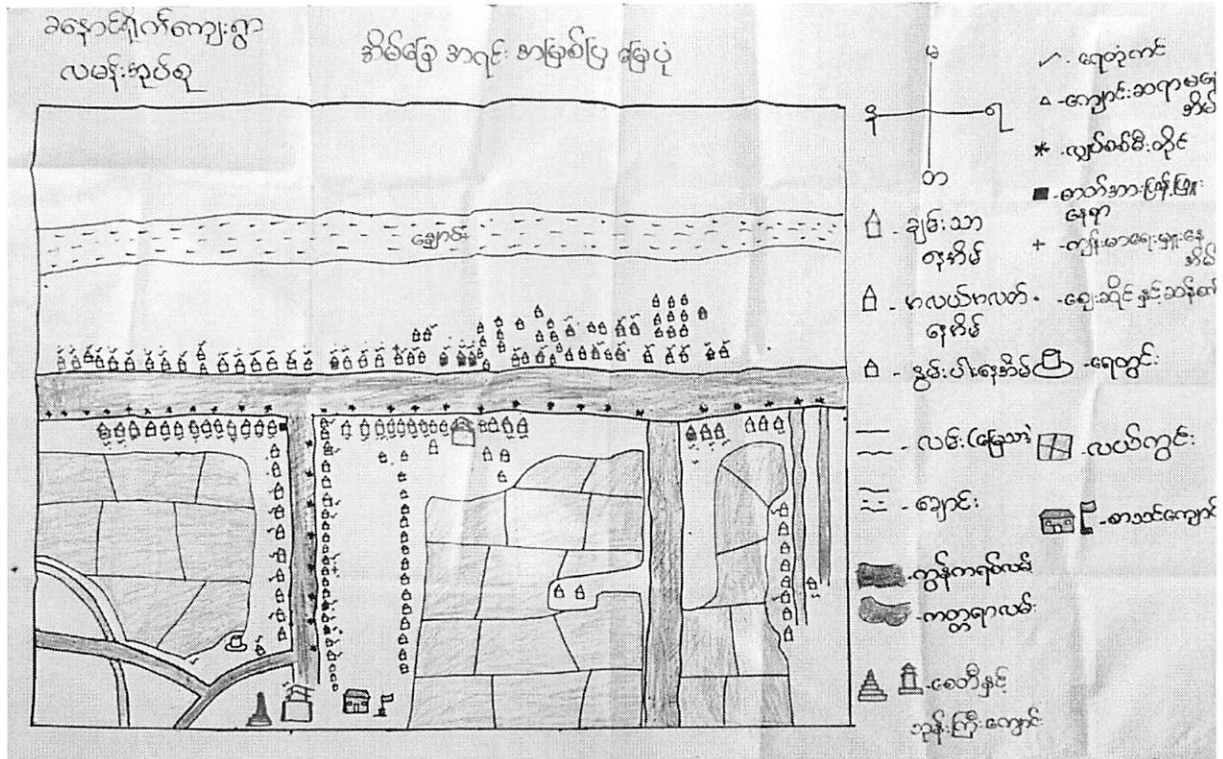 ခနောင်ရိုက်ကျေးရွာ
လမန်းအုပ်စု
အိမ်ခြေ အရင်း အမြစ်ပြ မြေပုံ
ချောင်း
မ
နိ
ရ
တ
ချမ်းသာ
နေအိမ်
မလယ်မလတ်
နေအိမ်
နွမ်းပါးနေအိမ်
လမ်း(မြေသား)
ချောင်း
ကွန်ကရစ်လမ်း
ကတ္တရာလမ်း
စေတီနှင့်
ဘုန်းကြီးကျောင်း
ရေတုံကင်
ကျောင်းဆရာမနေ
အိမ်
လျှပ်စစ်မီးတိုင်
ဓာတ်အားဖြန့်ဖြူး
နေရာ
ကျန်းမာရေးမှူးနေ
အိမ်
ဈေးဆိုင်နှင့်ဆန်စက်
ရေတွင်း
လယ်ကွင်း
စာသင်ကျောင်း